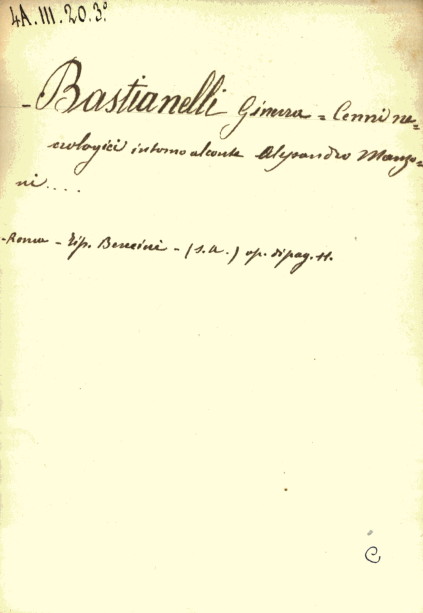 4A.III.20.3º
- Bastianelli Ginevra = Cenni ne=
crologici intorno al conte Alessandro Manzo=
ni....
- Roma - Tip. Bencini - (s.a.) op. di pag. 11.
C